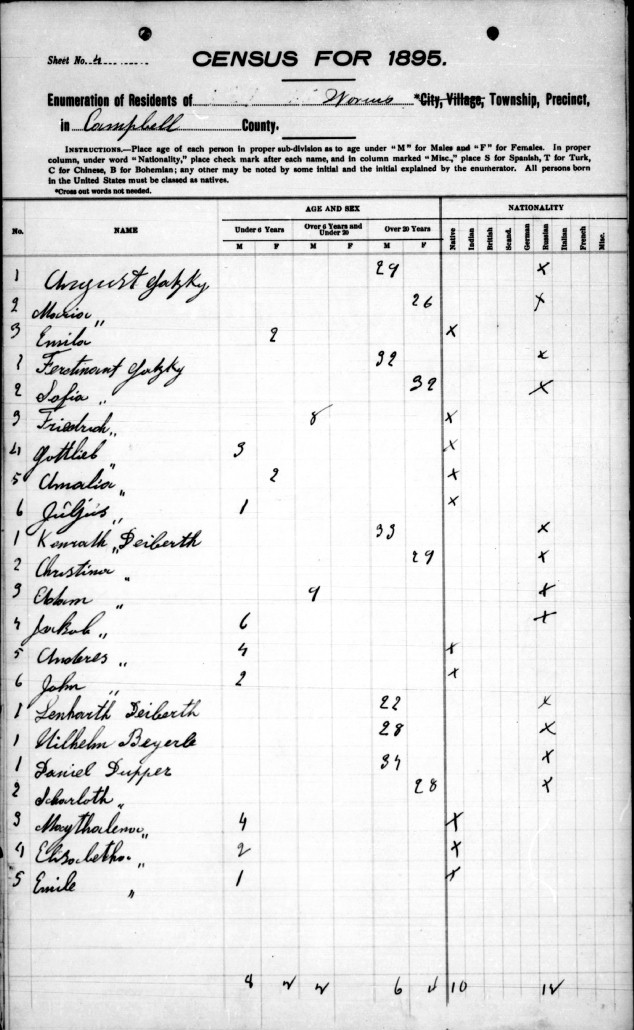 Sheet No. 4
CENSUS FOR 1895.
Enumeration of Residents of Worms *City, Village, Township, Precinct,
in Campbell County.
INSTRUCTIONS.—Place age of each person in proper sub-division as to age under "M" for Males and "F" for Females. In proper
column, under word "Nationality," place check mark after each name, and in column marked "Misc.," place S for Spanish, T for Turk,
C for Chinese, B for Bohemian; any other may be noted by some initial and the initial explained by the enumerator. All persons born
in the United States must be classed as natives.
*Cross out words not needed.
AGE AND SEX NATIONALITY
No. NAME Under 6 Years Over 6 Years and Under 20 Over 20 Years Native Indian British Scand. German Russian Italian French Misc.
M F M F M F
1 August Gatzky 29 x
2 Maria " 26 x
3 Emila " 2 x
1 Ferdinant Gatzky 32 x
2 Sofia " 32 x
3 Friedrich " 8 x
4 Gottlieb " 3 x
5 Amalia " 2 x
6 Juljus " 1 x
1 Konrath Deiberth 33 x
2 Christina " 29 x
3 Adam " 9 x
4 Jakob " 6 x
5 Anderes " 4 x
6 John " 2 x
1 Lenharth Deiberth 22 x
1 Wilhelm Beyerle 28 x
1 Daniel Dupper 34 x
2 Scharloth " 28 x
3 Maythalena " 4 x
4 Elisabetha " 2 x
5 Emile " 1 x
8 2 2 6 4 10 12